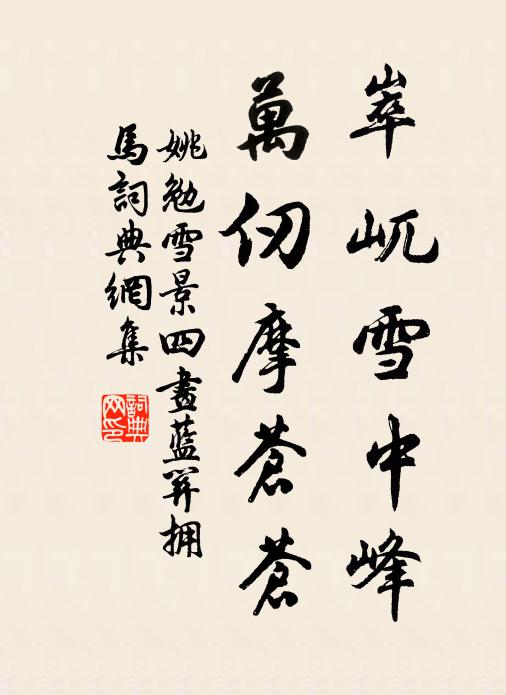 崒屼雪中峰
萬仞摩蒼蒼
姚勉雪景四畫藍關擁
馬詞典網集
詞典網印